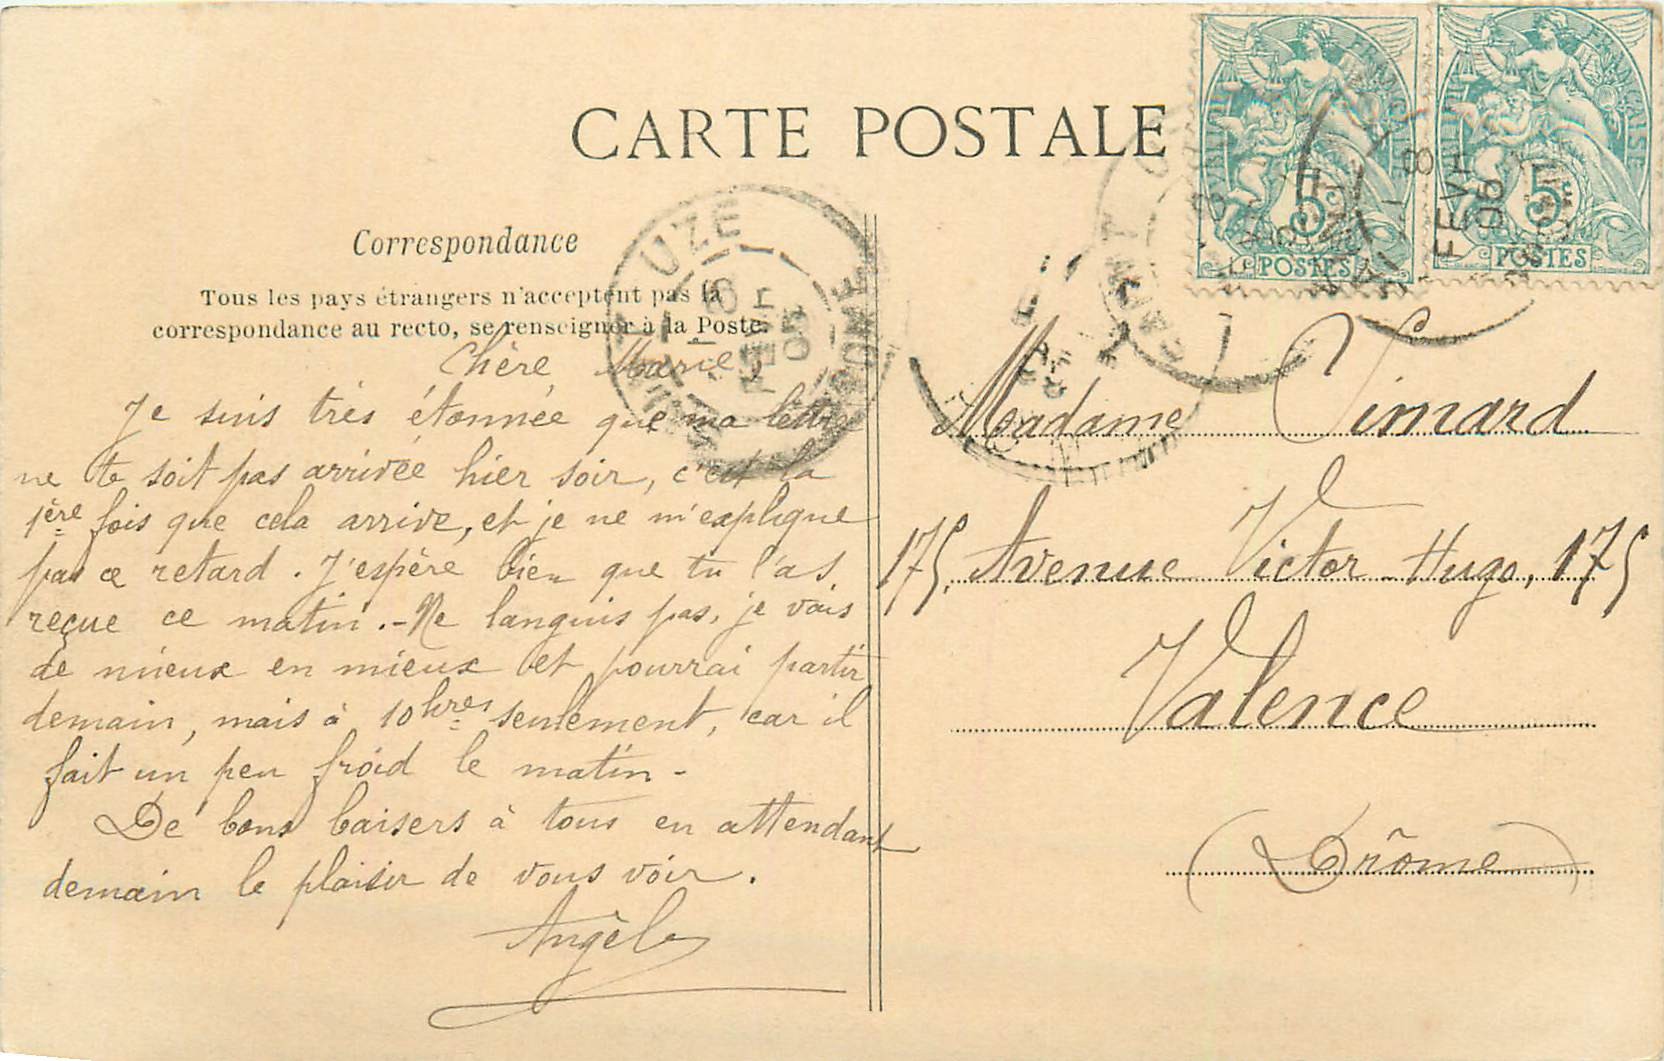 CARTE POSTALE
Correspondance
Tous les pays étrangers n'acceptent pas la
correspondance au recto, se renseigner à la Poste.
Chère Marie,
Je suis très étonnée que ma lettre
ne te soit pas arrivée hier soir, c'est la
1ère fois que cela arrive, et je ne m'explique
pas ce retard. J'espère bien que tu l'as
reçue ce matin. - Ne languis pas, je vais
de mieux en mieux et pourrai partir
demain, mais à 10 hres seulement, car il
fait un peu froid le matin -
De bons baisers à tous en attendant
demain le plaisir de vous voir.
Angèle
Madame Vimard
175, Avenue Victor-Hugo, 175
Valence
(Drôme)
UZE
DROME
8
FEVR
05
5
POSTES
FEVR
05
5
POSTES